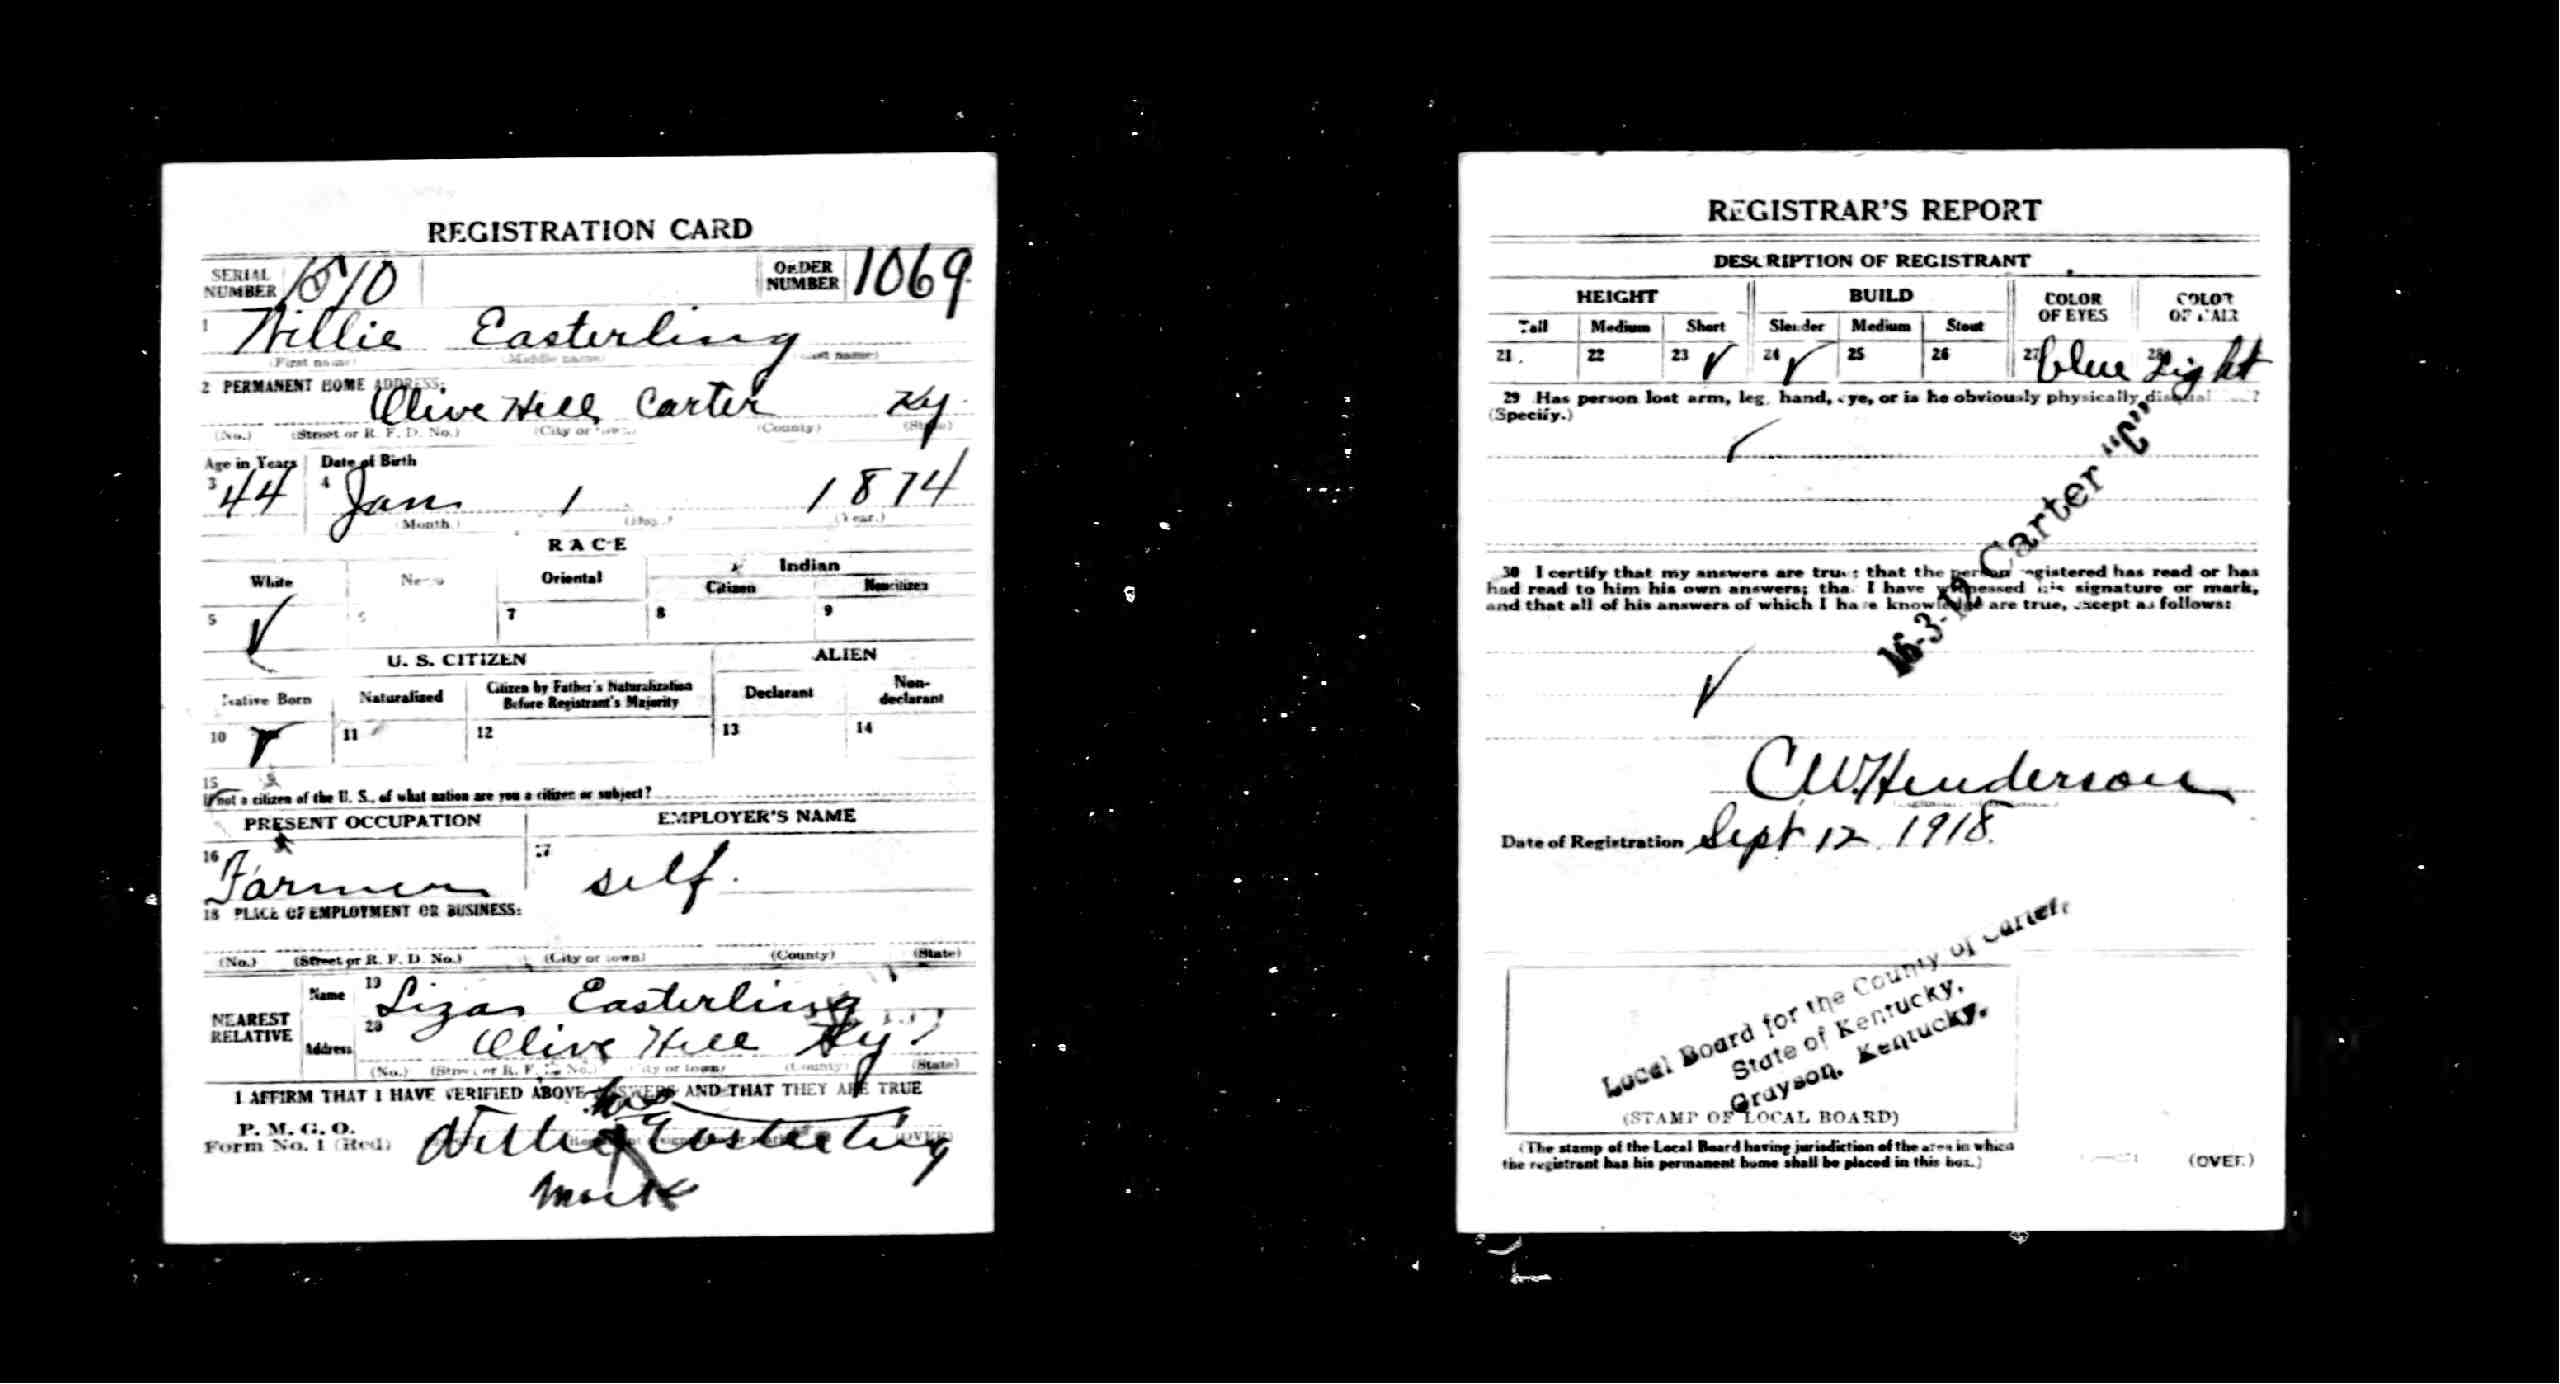 REGISTRATION CARD
SERIAL NUMBER 1510 ORDER NUMBER 1069
1 Willie Easterling
(First name) (Middle name) (Last name)
2 PERMANENT HOME ADDRESS:
Olive Hill Carter Ky.
(No.) (Street or R. F. D. No.) (City or town) (County) (State)
Age in Years Date of Birth
3 44 4 Jan 1 1874
(Month.) (Day.) (Year.)
RACE
White Negro Oriental Indian
Citizen Noncitizen
5 6 7 8 9
U. S. CITIZEN ALIEN
Native Born Naturalized Citizen by Father's Naturalization Before Registrant's Majority Declarant Non-declarant
10 11 12 13 14
15
If not a citizen of the U. S., of what nation are you a citizen or subject?
PRESENT OCCUPATION EMPLOYER'S NAME
16 Farmer 17 self.
18 PLACE OF EMPLOYMENT OR BUSINESS:
(No.) (Street or R. F. D. No.) (City or town) (County) (State)
NEAREST RELATIVE Name 19 Liza Easterling
Address 20 Olive Hill Ky
(No.) (Street or R. F. D. No.) (City or town) (County) (State)
I AFFIRM THAT I HAVE VERIFIED ABOVE ANSWERS AND THAT THEY ARE TRUE
P. M. G. O.
Form No. 1 (Red)
his
Willie Easterling (OVER)
mark
REGISTRAR'S REPORT
DESCRIPTION OF REGISTRANT
HEIGHT BUILD COLOR OF EYES COLOR OF HAIR
Tall Medium Short Slender Medium Stout
21 22 23 24 25 26 27 blue 28 Light
29 Has person lost arm, leg, hand, eye, or is he obviously physically disqualified?
(Specify.)
16-3-12 Carter "C"
30 I certify that my answers are true; that the person registered has read or has
had read to him his own answers; that I have witnessed his signature or mark,
and that all of his answers of which I have knowledge are true, except as follows:
C.W. Henderson
Date of Registration Sept 12 1918.
Local Board for the County of Carter,
State of Kentucky,
Grayson, Kentucky.
(STAMP OF LOCAL BOARD)
(The stamp of the Local Board having jurisdiction of the area in which
the registrant has his permanent home shall be placed in this box.)
(OVER)